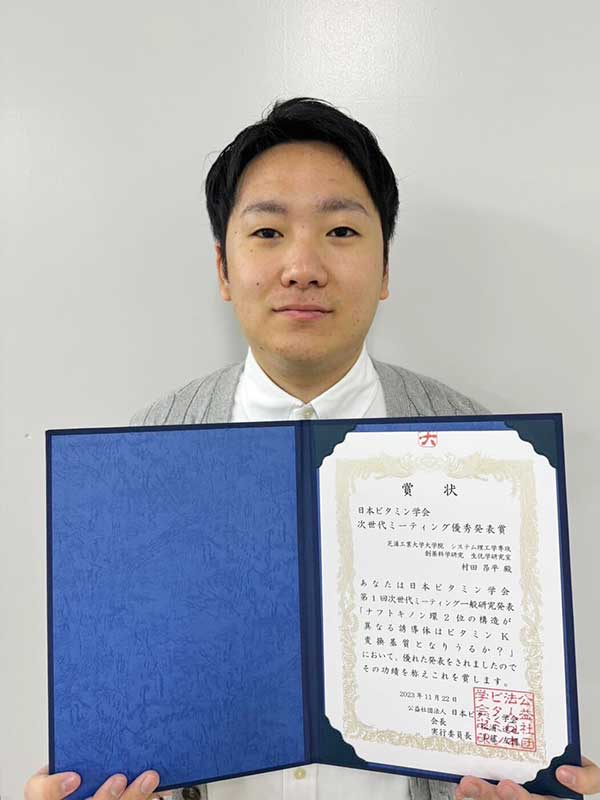 賞状
日本ビタミン学会
次世代ミーティング優秀発表賞
芝浦工業大学大学院 システム理工学専攻
創薬科学研究 生化学研究室
村田 昌平 殿
あなたは日本ビタミン学会
第1回次世代ミーティング一般研究発表
「ナフトキノン環2位の構造が
異なる誘導体はビタミンK
変換基質となりうるか?」
において、優れた発表をされましたので
その功績を称えこれを賞します。
2023年11月22日
公益社団法人 日本ビタミン学会
会長
実行委員長